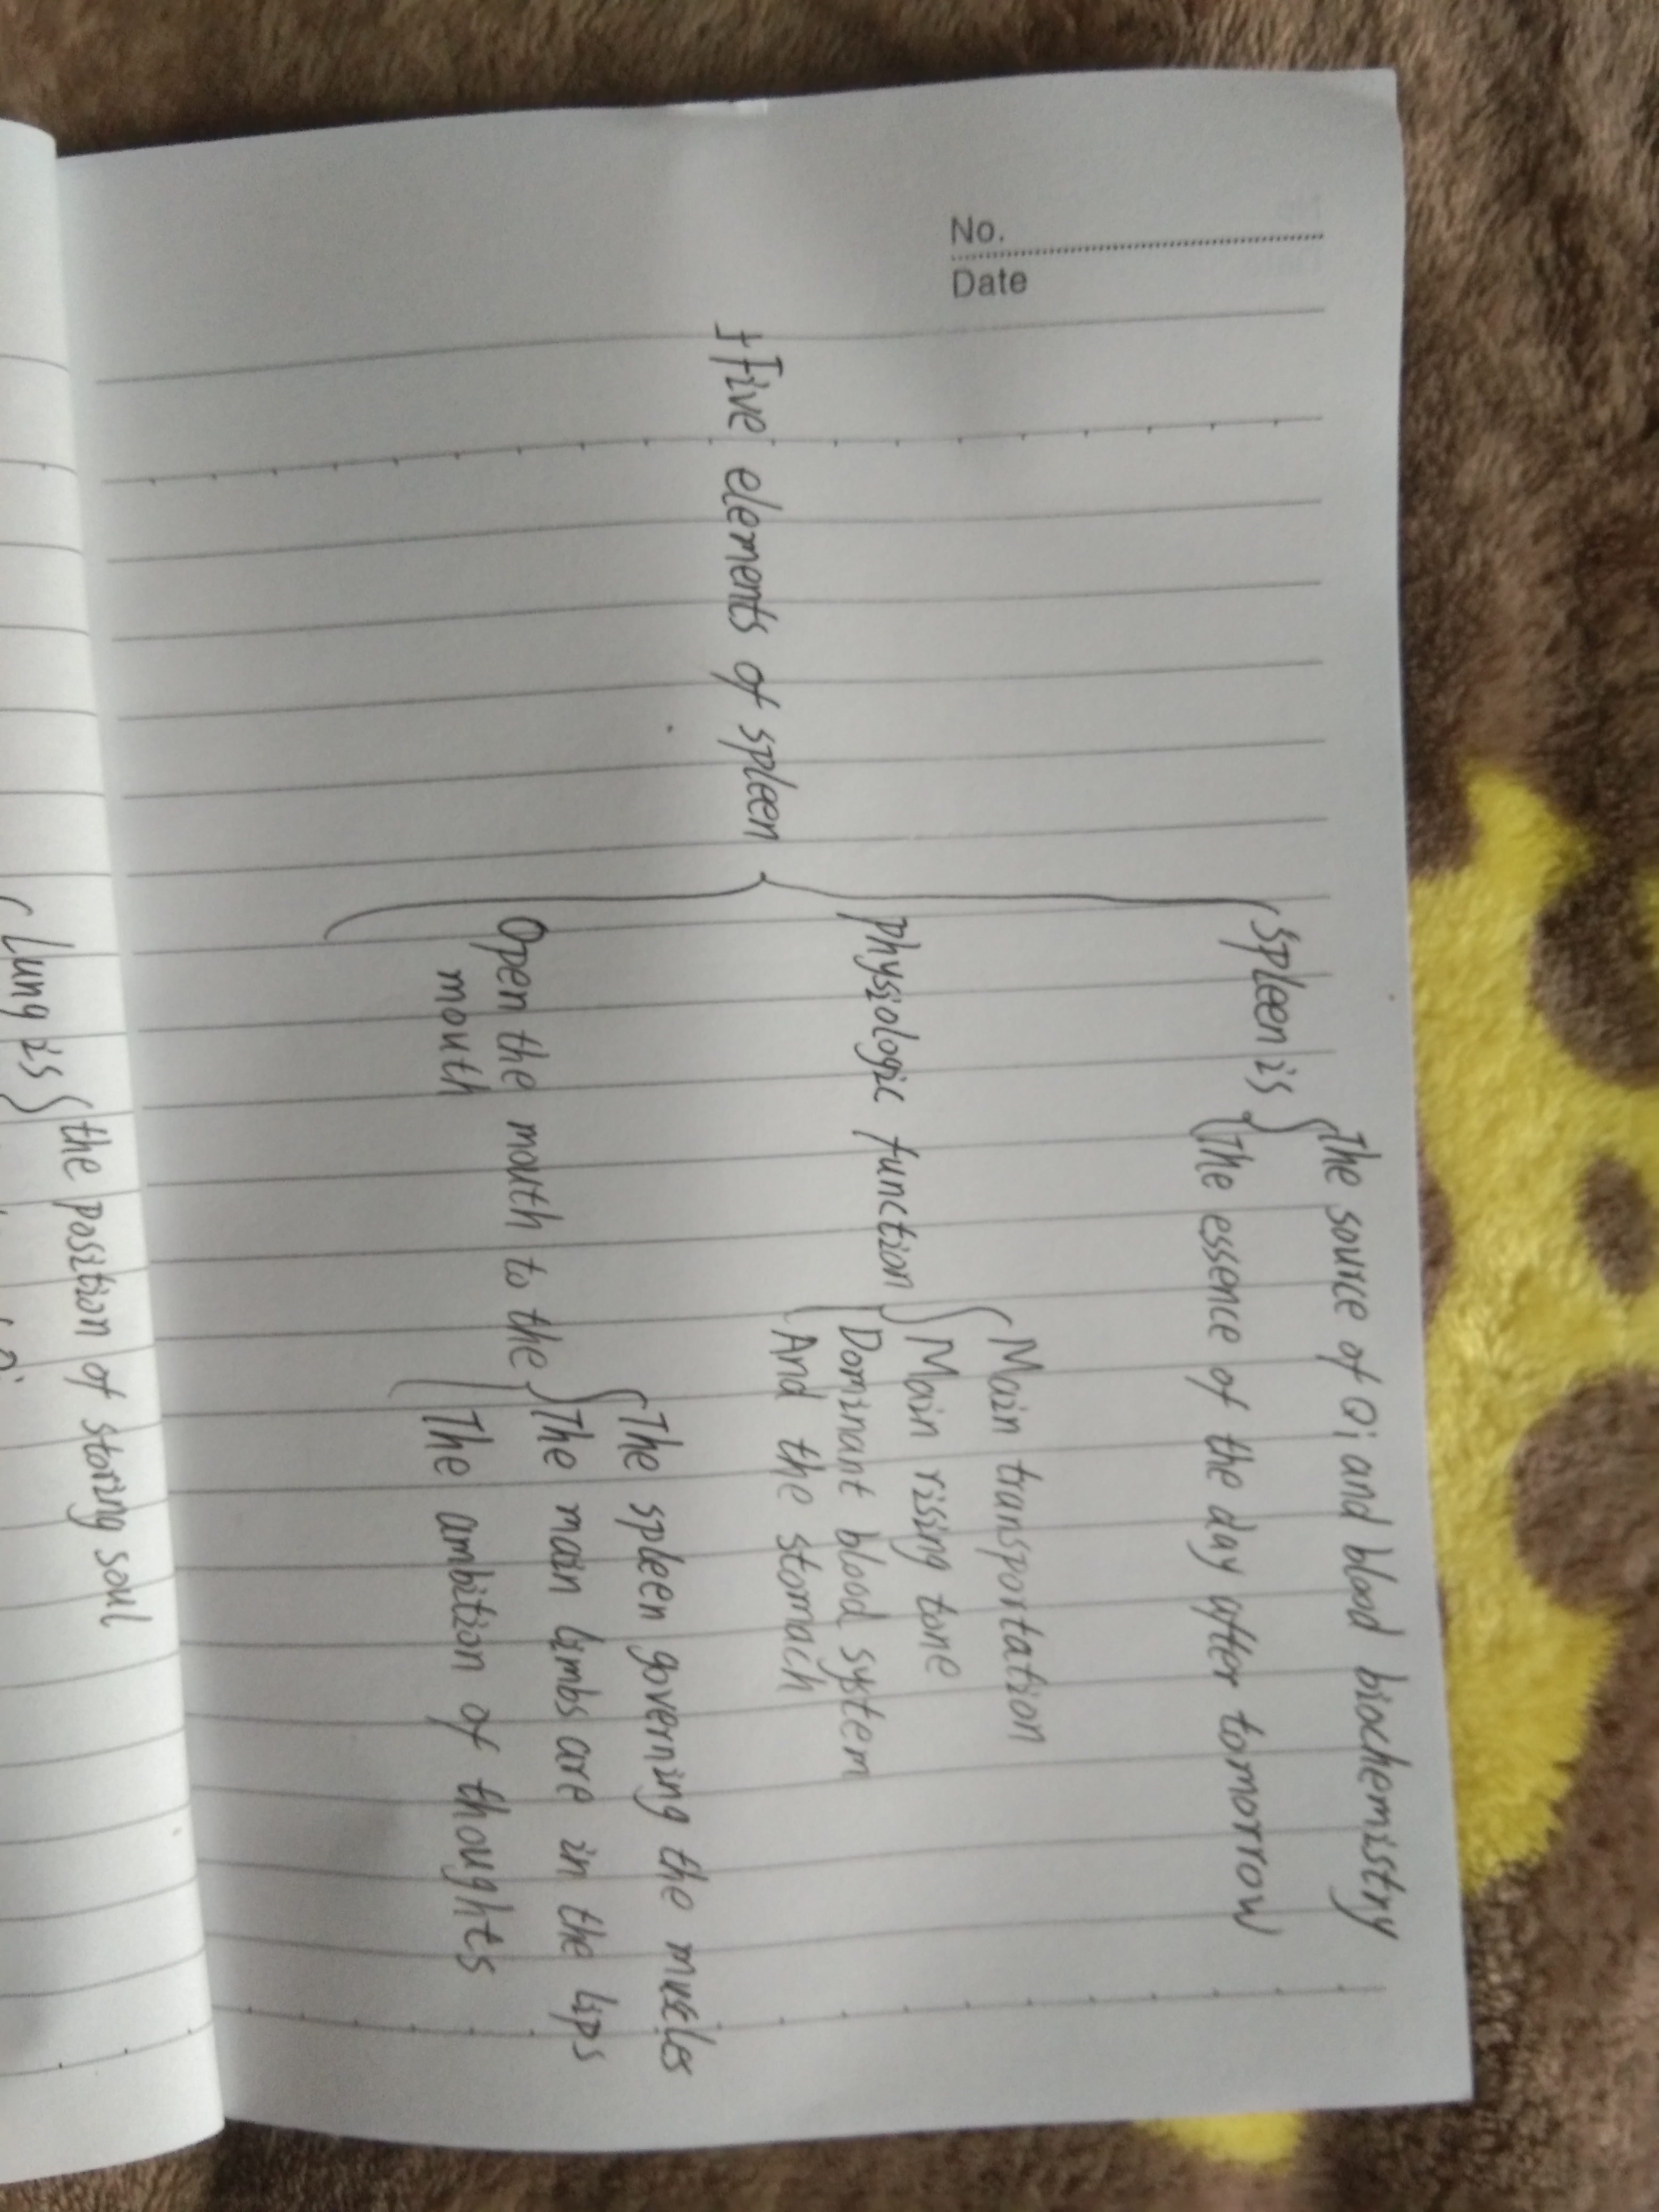 No.
Date
Five elements of spleen
Spleen is
The source of Qi and blood biochemistry
The essence of the day after tomorrow
physiologic function
Main transportation
Main rising tone
Dominant blood system
And the stomach
Open the mouth to the
mouth
The spleen governing the muscles
The main limbs are in the lips
The ambition of thoughts
Lung is
the position of storing soul